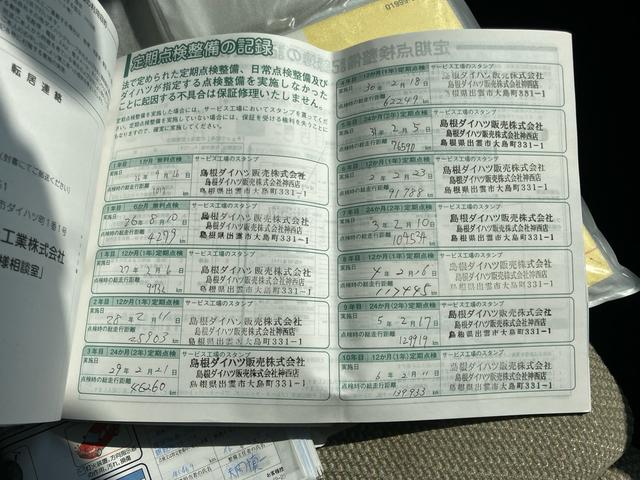 転居連絡
工業株式会社
様相談室」
定期点検整備の記録
法で定められた定期点検整備、日常点検整備及び
ダイハツが指定する点検整備を実施しなかった
ことに起因する不具合は保証修理いたしません。
1年目 1か月 無料点検
サービス工場のスタンプ
実施日
点検時の総走行距離
島根ダイハツ販売株式会社
島根ダイハツ販売株式会社神西店
島根県出雲市大島町331-1
1年目 6か月 無料点検
サービス工場のスタンプ
実施日 26年8月10日
点検時の総走行距離 4299 km
島根ダイハツ販売株式会社
島根ダイハツ販売株式会社神西店
島根県出雲市大島町331-1
1年目 12か月(1年)定期点検
サービス工場のスタンプ
実施日
点検時の総走行距離
島根ダイハツ販売株式会社
島根ダイハツ販売株式会社神西店
島根県出雲市大島町331-1
2年目 12か月(1年)定期点検
サービス工場のスタンプ
実施日 28年2月11日
点検時の総走行距離 25903 km
島根ダイハツ販売株式会社
島根ダイハツ販売株式会社神西店
島根県出雲市大島町331-1
3年目 24か月(2年)定期点検
サービス工場のスタンプ
実施日 29年2月21日
点検時の総走行距離 46260 km
島根ダイハツ販売株式会社
島根ダイハツ販売株式会社神西店
島根県出雲市大島町331-1
4年目 12か月(1年)定期点検
サービス工場のスタンプ
実施日 30年2月18日
点検時の総走行距離 62249 km
島根ダイハツ販売株式会社
島根ダイハツ販売株式会社神西店
島根県出雲市大島町331-1
5年目 24か月(2年)定期点検
サービス工場のスタンプ
実施日 31年2月5日
点検時の総走行距離 76590 km
島根ダイハツ販売株式会社
島根ダイハツ販売株式会社神西店
島根県出雲市大島町331-1
6年目 12か月(1年)定期点検
サービス工場のスタンプ
実施日 2年2月23日
点検時の総走行距離 91788 km
島根ダイハツ販売株式会社
島根ダイハツ販売株式会社神西店
島根県出雲市大島町331-1
7年目 24か月(2年)定期点検
サービス工場のスタンプ
実施日 3年2月10日
点検時の総走行距離 109534 km
島根ダイハツ販売株式会社
島根ダイハツ販売株式会社神西店
島根県出雲市大島町331-1
8年目 12か月(1年)定期点検
サービス工場のスタンプ
実施日 4年2月16日
点検時の総走行距離
島根ダイハツ販売株式会社
島根ダイハツ販売株式会社神西店
島根県出雲市大島町331-1
9年目 24か月(2年)定期点検
サービス工場のスタンプ
実施日 5年2月17日
点検時の総走行距離 129919 km
島根ダイハツ販売株式会社
島根ダイハツ販売株式会社神西店
島根県出雲市大島町331-1
10年目 12か月(1年)定期点検
サービス工場のスタンプ
実施日 6年2月11日
点検時の総走行距離 139933 km
島根ダイハツ販売株式会社
島根ダイハツ販売株式会社神西店
島根県出雲市大島町331-1